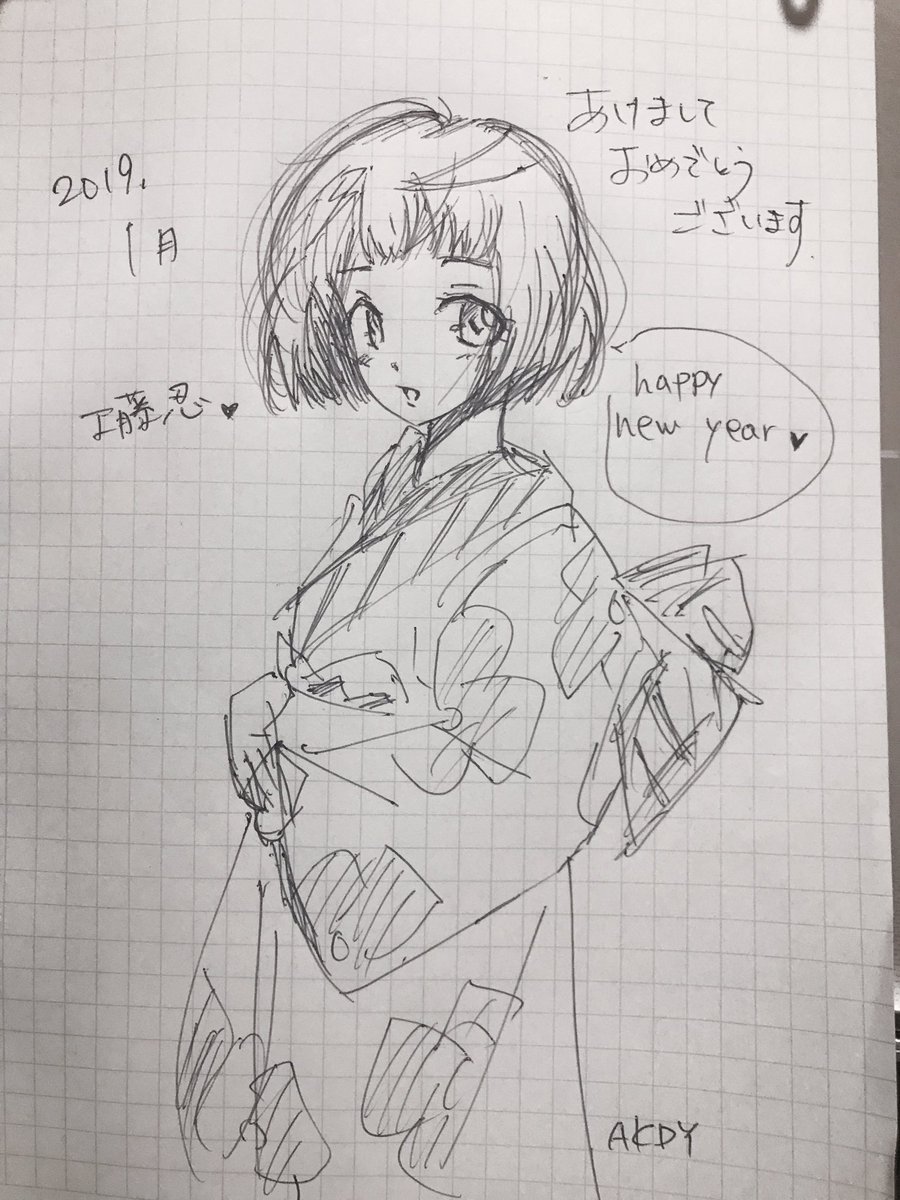 あけまして
おめでとう
ございます.
2019.
1月
工藤忍♥
happy
new year ♥
AKDY